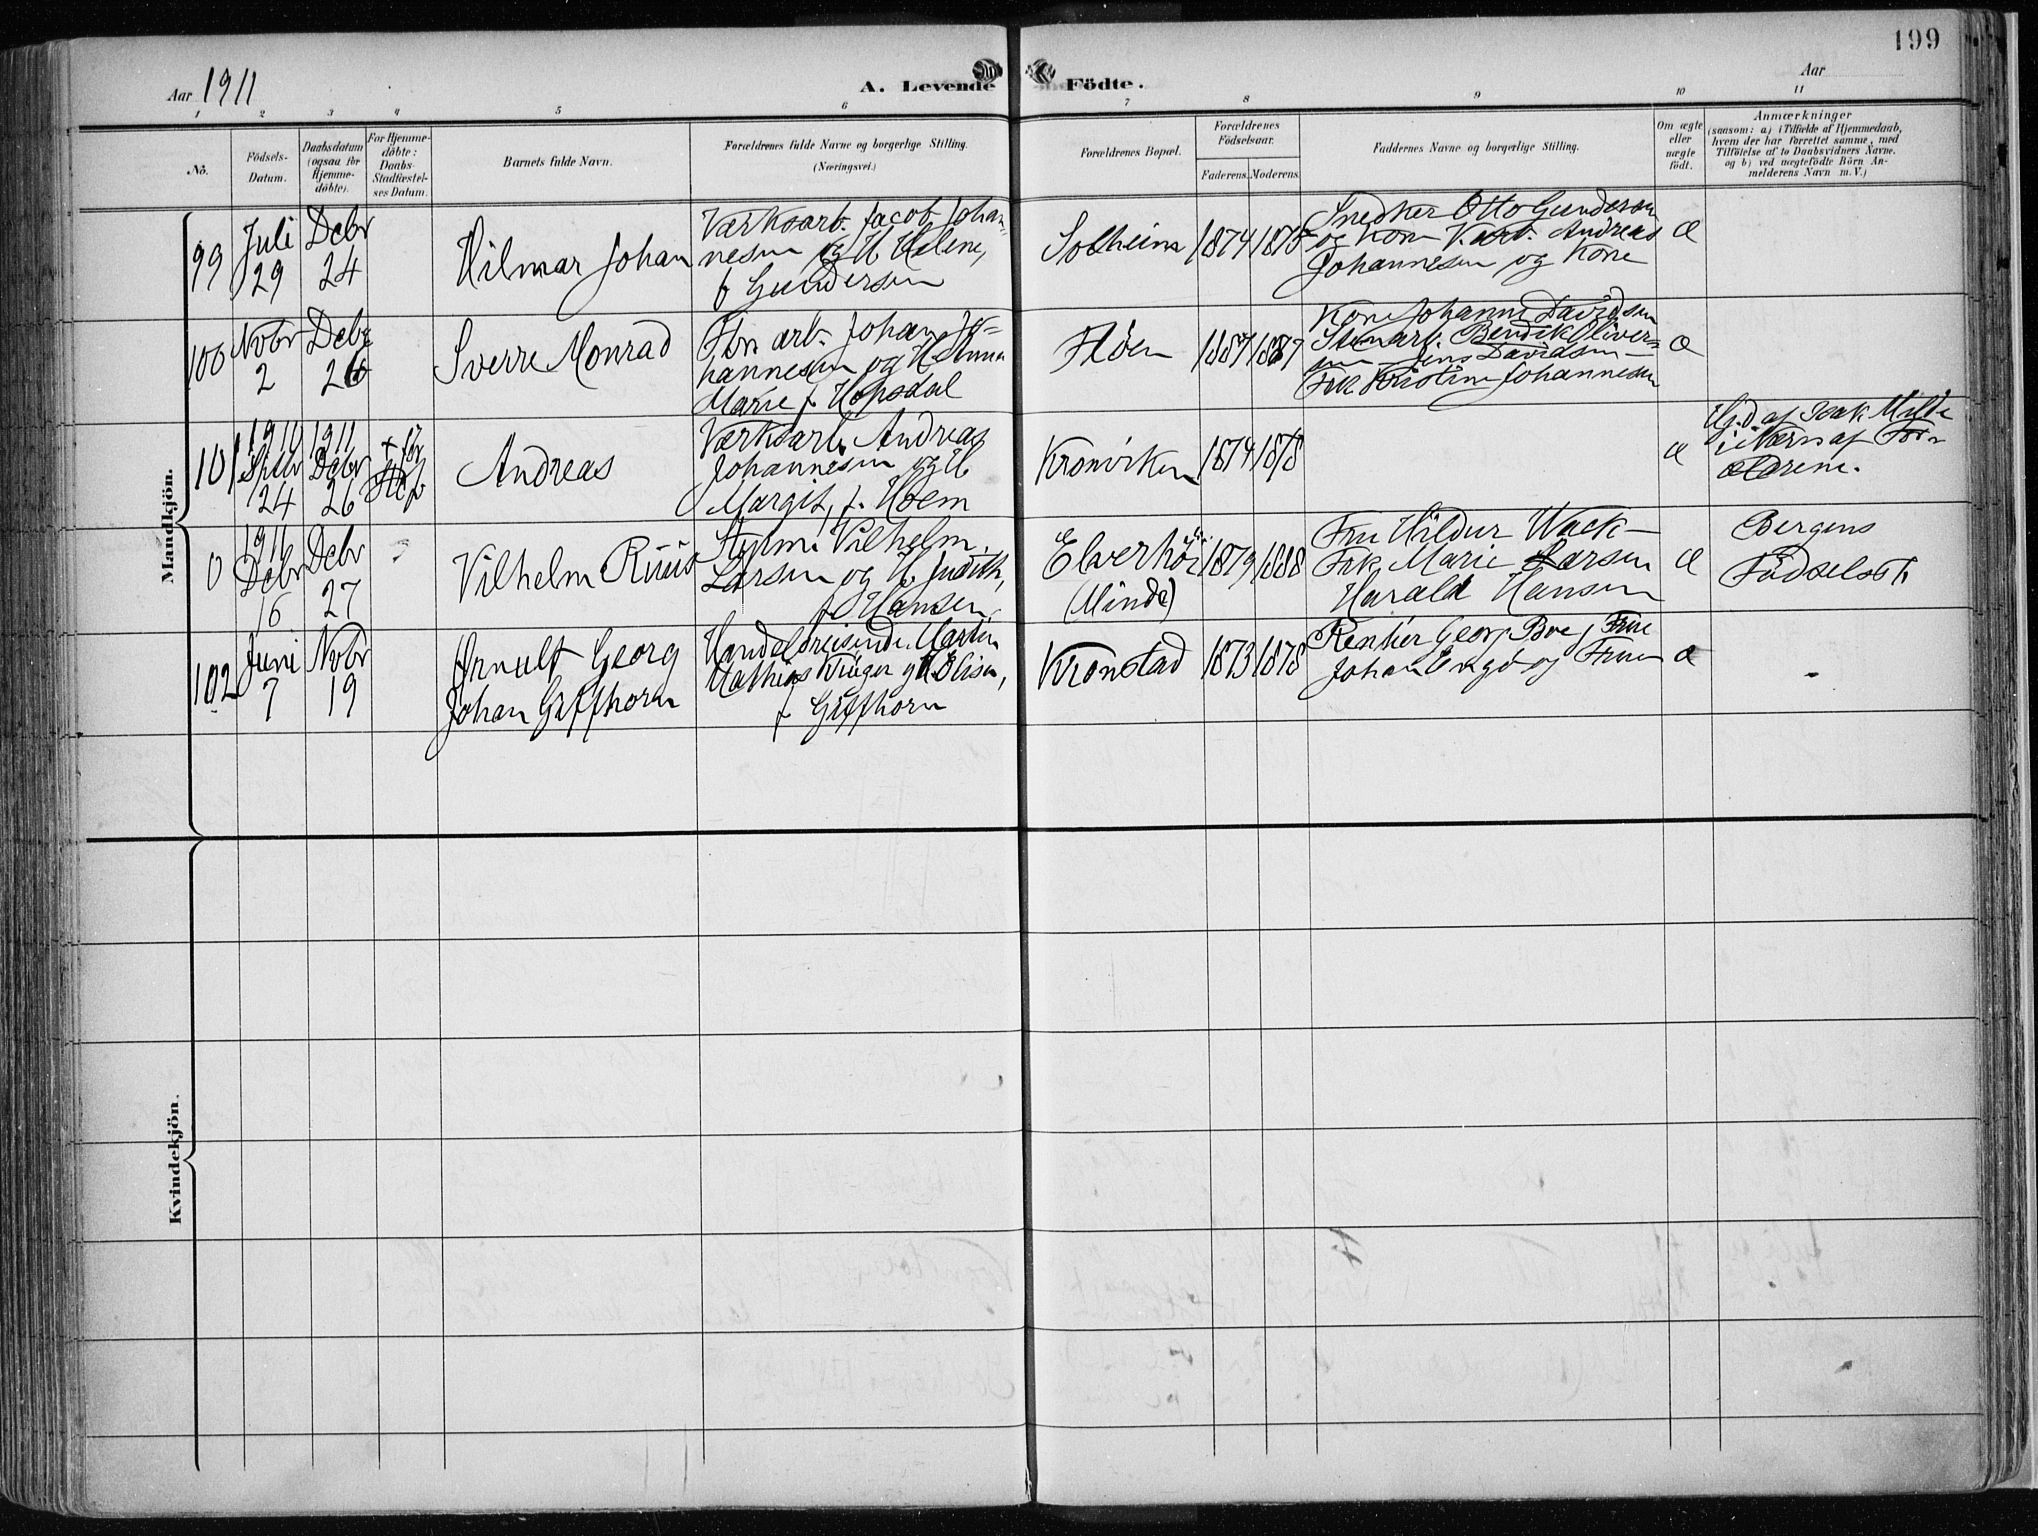 199
Aar 1911
A. Levende Födte.
Aar
1 2 3 4 5 6 7 8 9 10 11
No.
Födsels-Datum.
Daabsdatum (ogsaa for Hjemme-döbte).
For Hjemme-döbte: Daabs-Stadfæstel-ses Datum.
Barnets fulde Navn.
Forældrenes fulde Navne og borgerlige Stilling.
(Næringsvei.)
Forældrenes Bopæl.
Forældrenes Födselsaar.
Faderens. Moderens.
Faddernes Navne og borgerlige Stilling.
Om ægte eller uægte födt.
Anmærkninger
(saasom: a) i Tilfælde af Hjemmedaab,
hvem der har forrettet samme, med
Tilföielse af to Daabsvidners Navne.
og b) ved uægtefödte Börn An-
melderens Navn m. V.)
Mandkjön.
99
Juli
29
Debr
24
Hilmar Johan
Værksarb. Jacob Johan=
nesen og H Helene,
f Gundersen
Solheim
1874 1875
Snedker Otto Gundersen
og Kone V.arb. Andreas
Johannesen og Kone
Æ
100
Novbr
2
Debr
26
Sverre Monrad
arb. Johan Jo=
hannesen og H Anna
Marie f. Hopsdal
Fløen
1887 1887
Kone Johanne Davidsen
Stenarb. Bendik Olivers=
en Jens Davidsen—
Frk Kristine Johannesen
Æ
101
1911
Septbr
24
1911
Debr
26
+ før
Stf
Andreas
Værksarb. Andreas
Johannesen og H
Margit, f. Hoem
Kronviken
1874 1878
Æ
Hj.d. af Isak Milde
i Nærv af For=
ældrene.
0
1911
Debr
16
Debr
27
Vilhelm Riiis
Styrm. Vilhelm
Larsen og H Judith,
f Hansen
Elverhøi
(Minde)
1879 1888
Fru Hildur Wack—
Frk Marie Larsen
Harald Hansen
Æ
Bergens
Fødselsst.
102
Juni
7
Novbr
19
Arnulf Georg
Johan Giffhorn
Handelsreisende Martin
Mathias Krüger og H. Elisa,
f Giffhorn
Kronstad
1873 1878
Rentier Georg Boe, Frue
Johan og Frue
Æ
Kvindekjön.